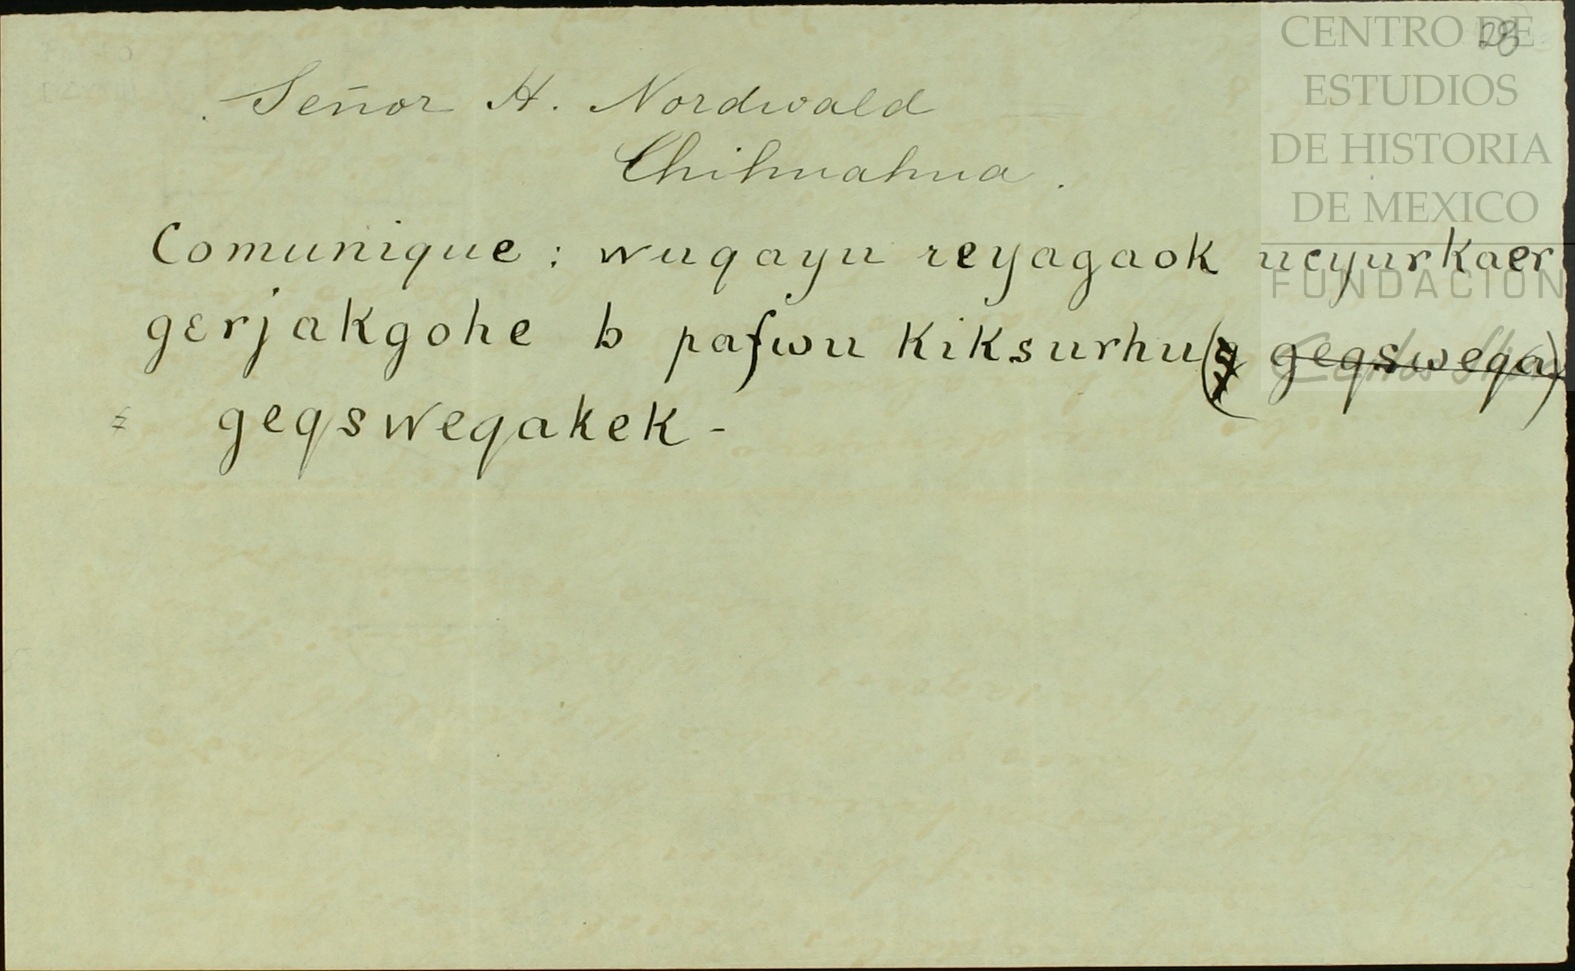 28
Señor H. Nordwald
Chihuahua.
Comunique: wuqayu reyagaok ucyurkaer
gerjakgohe b pafwu kiksurhu( geqsweqa)
geqsweqakek -
CENTRO DE
ESTUDIOS
DE HISTORIA
DE MEXICO
FUNDACIÓN